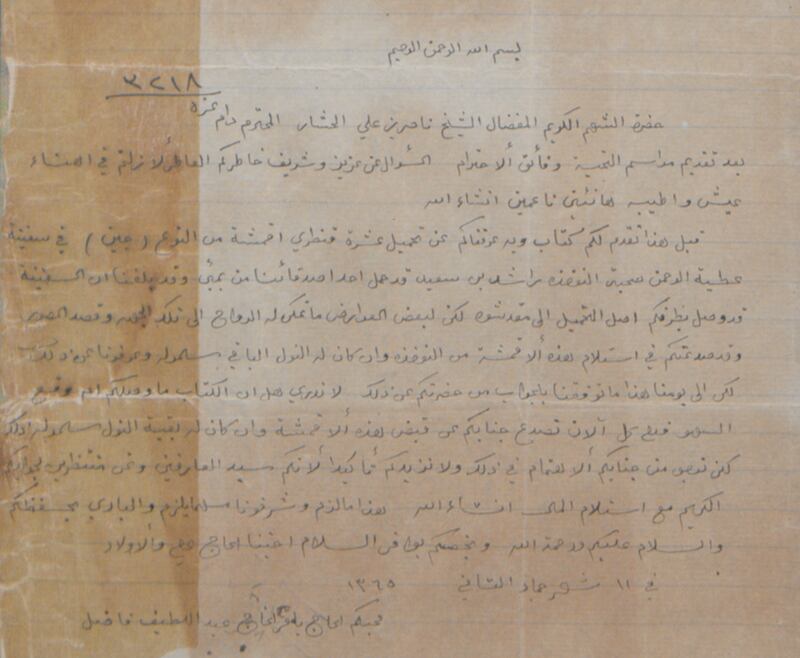 بسم الله الرحمن الرحيم
٣٢١٨
حضرة الشهم الكريم المفضال الشيخ ناصر بن علي الخشار المحترم دام عزه
بعد تقديم مراسم التحية وفائق ألاحترام السؤال عن عزيز وشريف خاطركم العاطر لازلتم في اهناء
عيش واطيبه هانئين ناعمين انشاء الله
قبل هذا تقدم لكم كتاب وبه عرفناكم عن تحميل عشرة قنطري اقمشة من النوع (جين) في سفينة
عطية الرحمن صحبة النوخذه راشد بن سعيد قد حمل احد اصدقائنا من بمبئ وقد بلغنا ان السفينة
قد وصل بطرفكم اصل التحميل الى لكن لبعض العوارض ما تمكن له الرواح الى تلك وقصد
وقد صدعتكم في استلام هذه ألاقمشة من النوخذه وان كان له النول الباقي سلموله وعرفونا عن ذلك
لكن الى يومنا هذا ما توفقنا بالجواب من حضرتكم عن ذلك لا ندري هل ان الكتاب ما وصلكم ام وقع
السهو فلعل آلان تصدع جنابكم عن قبض هذه ألاقمشة وان كان له بقية النول سلموله اذلك
كلن نرجو من جنابكم ألاهتمام في ذلك ولا نزيدكم تأكيدا لانكم سيد العارفين ونحن منتظرين لجوابكم
الكريم مع استلام المال انشاء الله هذا مالزم وشرفونا بما يلزم والباري يحفظكم
والسلام عليكم ورحمة الله ويخصكم بوافر السلام اخينا الحاج وألاولاد
في ١١ شهر جماد الثاني ١٣٦٥
محبكم الحاج باقر الحاج عبد اللطيف فاضل